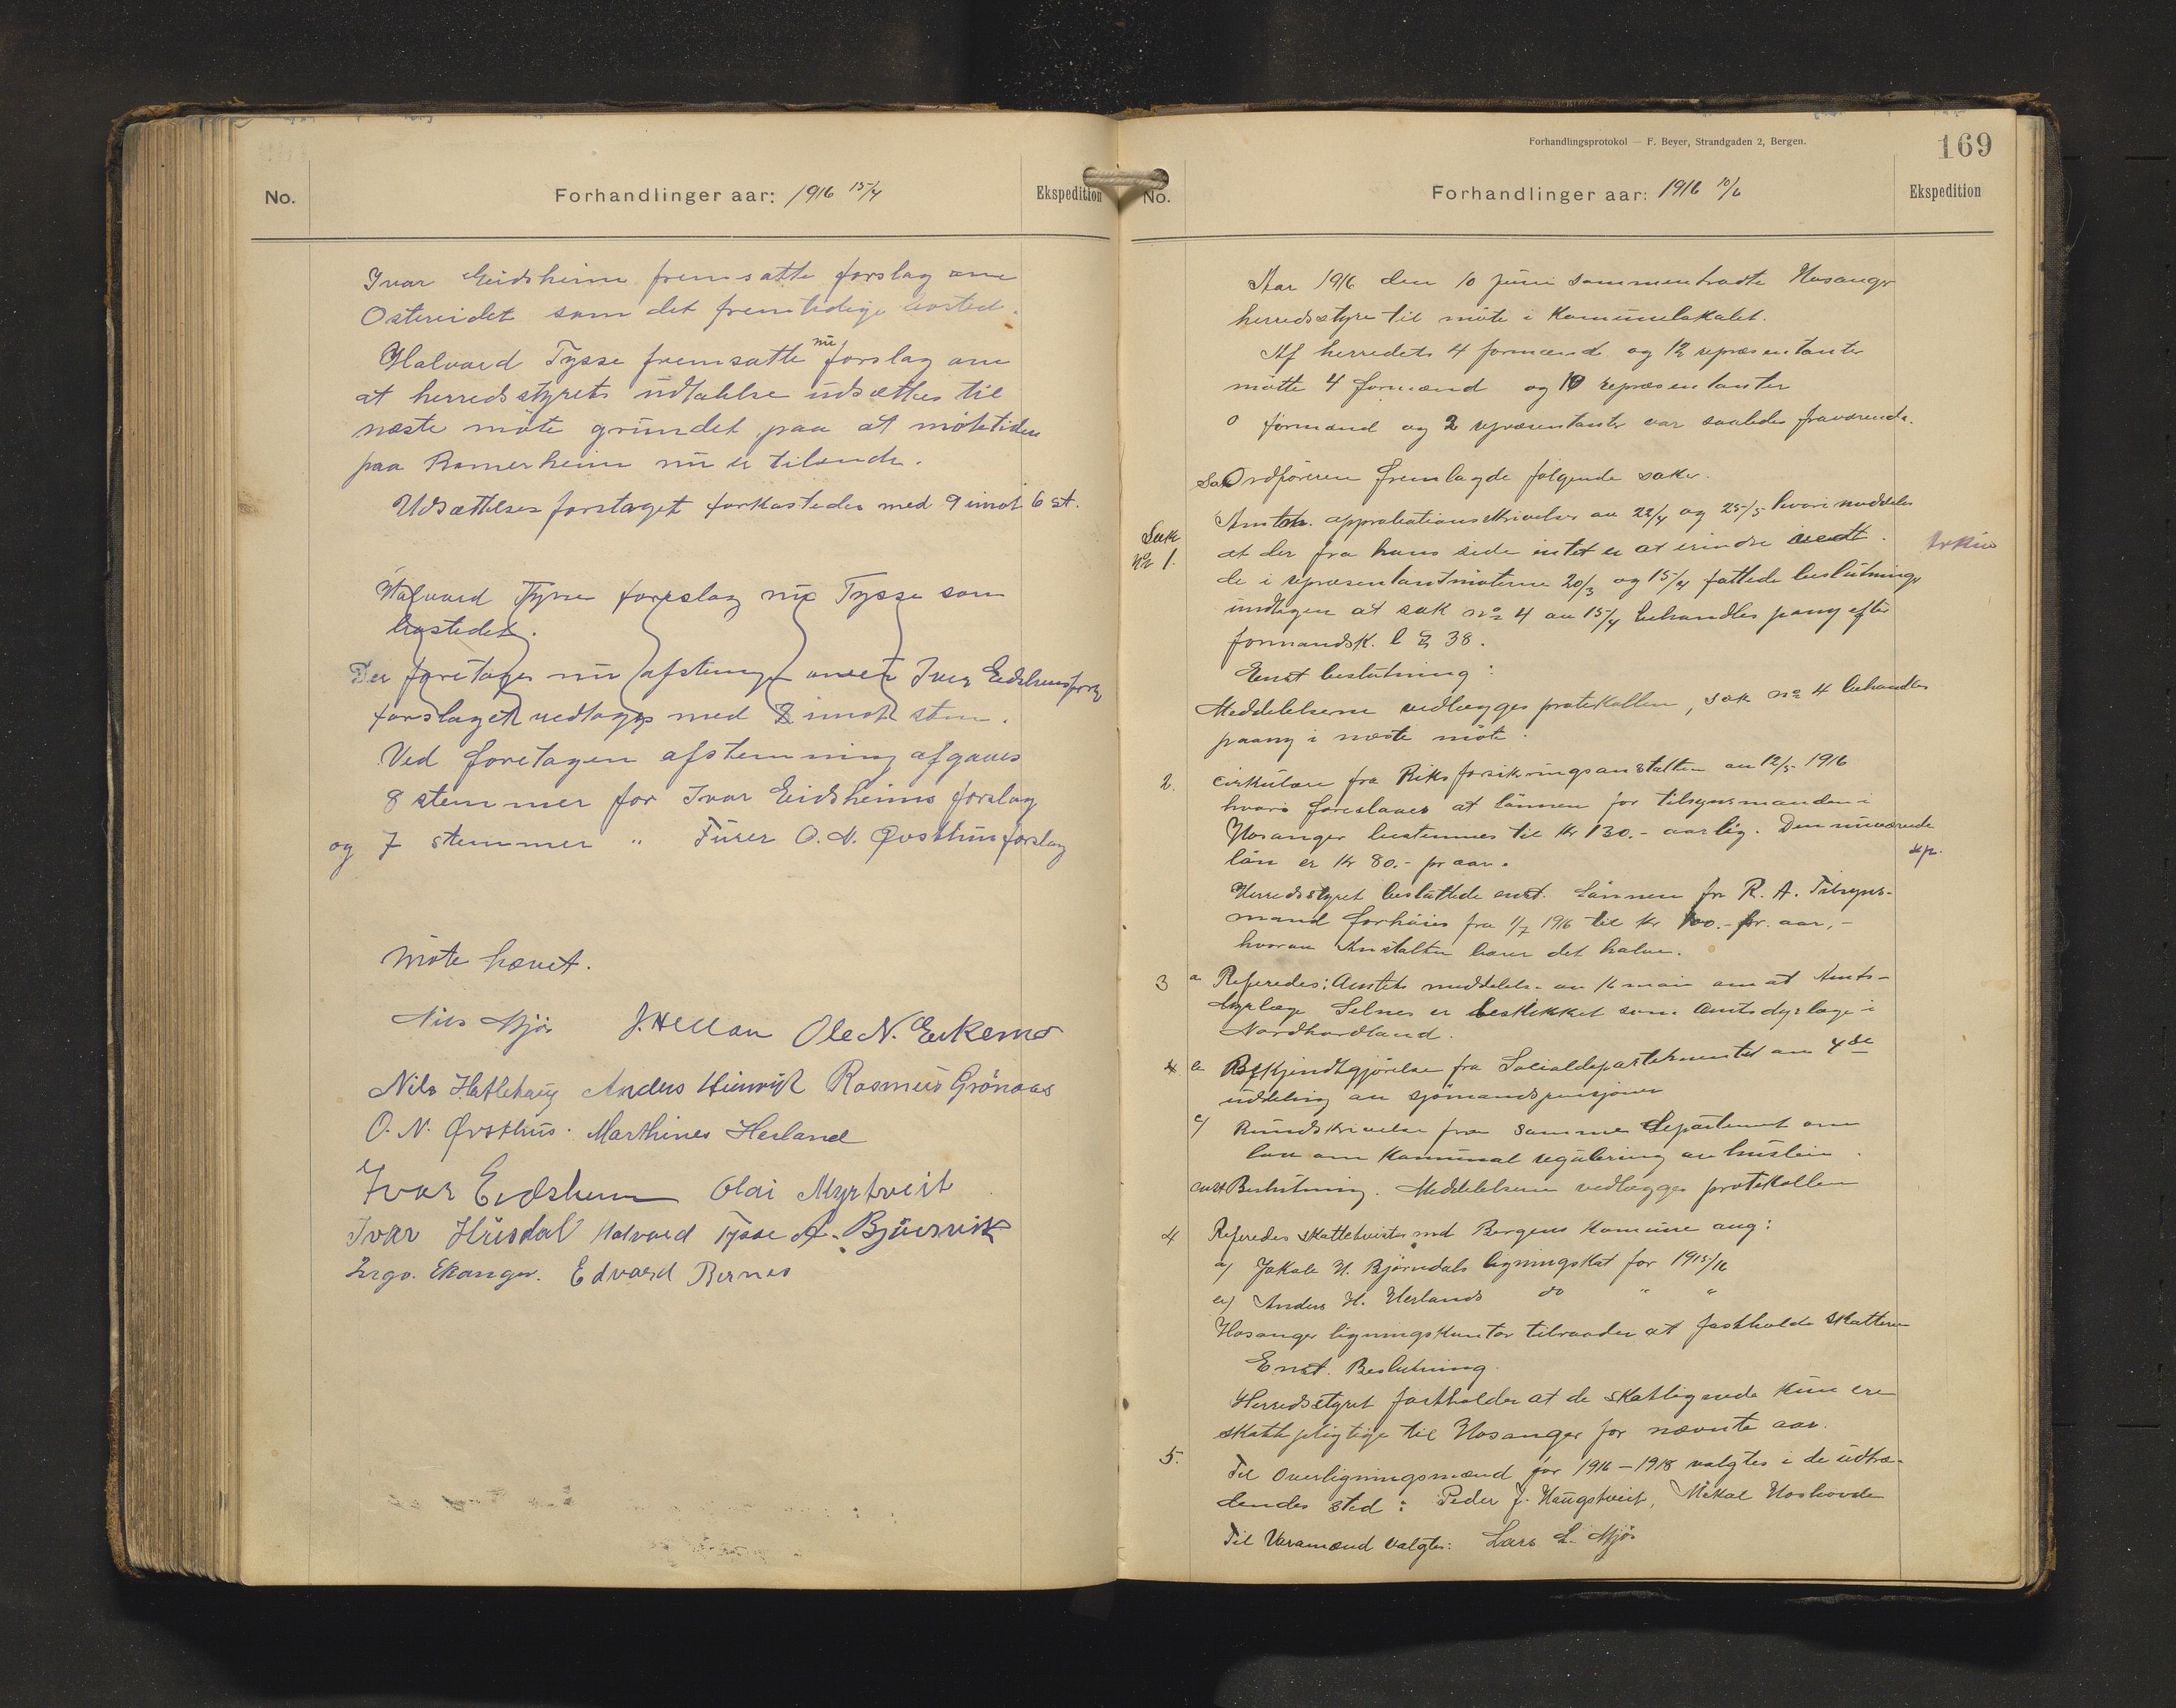 No.
Forhandlinger aar: 1916 15/4
Ekspedition
Ivar Eidsheim fremsatte forslag om
Ostereidet som det fremtidige bosted.
Halvard Tysse fremsatte nu forslag om
at herredsstyrets udtalelse udsættes til
næste møte grundet paa at møtetiden
paa Romerheim nu er tilende.
Udsættelsesforslaget forkastedes med 9 imot 6 st.
Halvard Tysse forslag nu Tysse som
bostedet.
Der foretoges nu afstemn over Ivar Eidsheims forsl
forslaget vedtoges med 8 imot stem.
Ved foretagen afstemning afgaves
8 stemmer for Ivar Eidsheims forslag
og 7 stemmer " Furer O. N. Øvsthus forslag
Møte hævet.
Nils Mjøs J. Hellan Ole N. Eikemo
Nils Hatlehaug Anders Heimvik Rasmus Grönaas
O. N. Øvsthus. Marthines Herland
Ivar Eidsheim Olai Myrtveit
Ivar Húsdal Halvard Tysse A. Bjørsvik
Brgo. Ekanger. Edvard Bernes
Forhandlingsprotokol — F. Beyer, Strandgaden 2, Bergen.
169
No.
Forhandlinger aar: 1916 10/6
Ekspedition
Aar 1916 den 10 juni sammentraadte Hosanger
herredsstyre til møte i Kommunelokalet.
Af herredets 4 formænd og 12 repræsentanter
møtte 4 formænd og 10 repræsentanter
0 formænd og 2 repræsentanter var saaledes fraværende.
Sak Ordføreren fremlagde følgende saker.
Sak
No 1.
Amtets approbationsskrivelser av 22/4 og 25/5 hvori meddeles
at der fra hans side intet er at erindre vedt.
Arkiv
de i repræsentantmøterne 20/3 og 15/4 fattede beslutninger
undtagen at sak No 4 av 15/4 behandles paany efter
formandsk. l § 38.
Enst beslutning:
Meddelelserne vedlægges protokollen, sak No 4 behandles
paany i næste møte.
2.
Cirkulære fra Riksforsikringsanstalten av 12/5 1916
hvori foreslaaes at lønnen for tilsynsmanden i
Hosanger bestemmes til kr 130.- aarlig. Den nuværende
løn er kr 80.- pr aar.
exp.
Herredsstyret besluttede enst. Lønnen for R. A. Tilsyns-
mand forhøies fra 1/7 1916 til kr 100.- pr. aar, -
hvorav Anstalten bærer det halve.
3
a Referedes: Amtets meddelelse av 16 mai om at Amts-
dyrlæge Selnes er beskikket som Amtsdyrlæge i
Nordhordland.
b Bekjendtgjørelse fra Socialdepartementet om 4de
uddeling av sjømandspensjoner
c) Rundskrivelse fra samme Departement om
lov om Kommunal regulering av husleie.
enst Beslutning. Meddelelserne vedlægges protokollen
4
Referedes skattetvister med Bergens Komune ang:
a) Jakob H. Bjørndals ligningskat for 1915/16
b) Anders H. Herlands do " "
Hosanger ligningskontor tilraader at fastholde skatten
Enst. Beslutning.
Herredsstyret fastholder at de skatlignede kun er
skattepligtige til Hosanger for nævnte aar.
5.
Til Overligningsmænd for 1916-1918 valgtes i de udtræ-
dendes sted: Peder J. Haugstveit, Mikal Hoshovde
Til Varamænd valgtes: Lars L. Mjøs